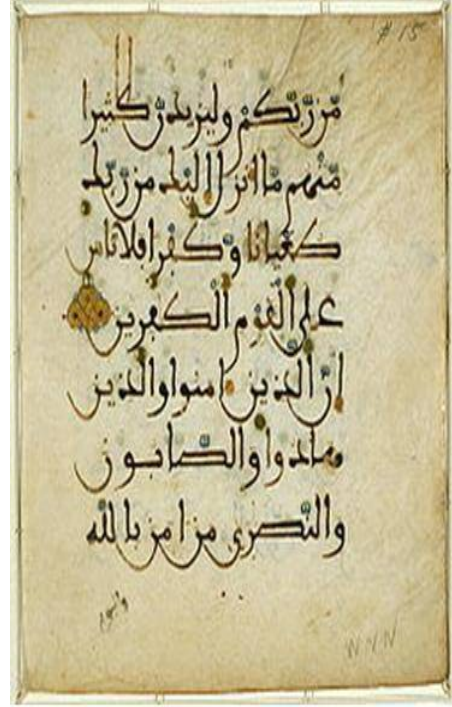 # 15
من ربكم وليزيدن كثيرا
منهم ما انزل اليك من ربك
طغيانا وكفرا فلا تاس
على القوم الكفرين
ان الذين امنوا والذين
هادوا والصابون
والنصرى من امن بالله
واليوم